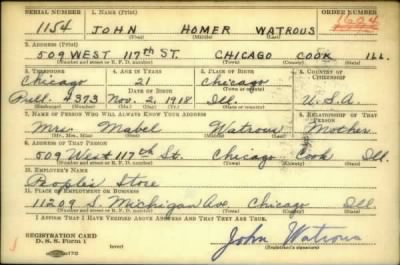 SERIAL NUMBER 1. NAME (Print) ORDER NUMBER
1154 JOHN HOMER WATROUS 1604
(First) (Middle) (Last)
2. ADDRESS (Print)
509 WEST 117th ST. CHICAGO COOK ILL.
(Number and street or R. F. D. number) (Town) (County) (State)
3. TELEPHONE 4. AGE IN YEARS 5. PLACE OF BIRTH 6. COUNTRY OF CITIZENSHIP
Chicago 21 Chicago
DATE OF BIRTH (Town or county)
Pull. 4373 Nov. 2, 1918 Ill. U.S.A.
(Exchange) (Number) (Mo.) (Day) (Yr.) (State or country)
7. NAME OF PERSON WHO WILL ALWAYS KNOW YOUR ADDRESS 8. RELATIONSHIP OF THAT PERSON
Mrs. Mabel Watrous Mother
(Mr., Mrs., Miss) (First) (Middle) (Last)
9. ADDRESS OF THAT PERSON
509 West 117th St. Chicago Cook Ill.
(Number and street or R. F. D. number) (Town) (County) (State)
10. EMPLOYER'S NAME
Peoples Store
11. PLACE OF EMPLOYMENT OR BUSINESS
11209 S. Michigan Ave. Chicago Ill.
(Number and street or R. F. D. number) (Town) (County) (State)
I AFFIRM THAT I HAVE VERIFIED ABOVE ANSWERS AND THAT THEY ARE TRUE.
REGISTRATION CARD
D. S. S. Form 1 (over) John Watrous
(Registrant's signature)